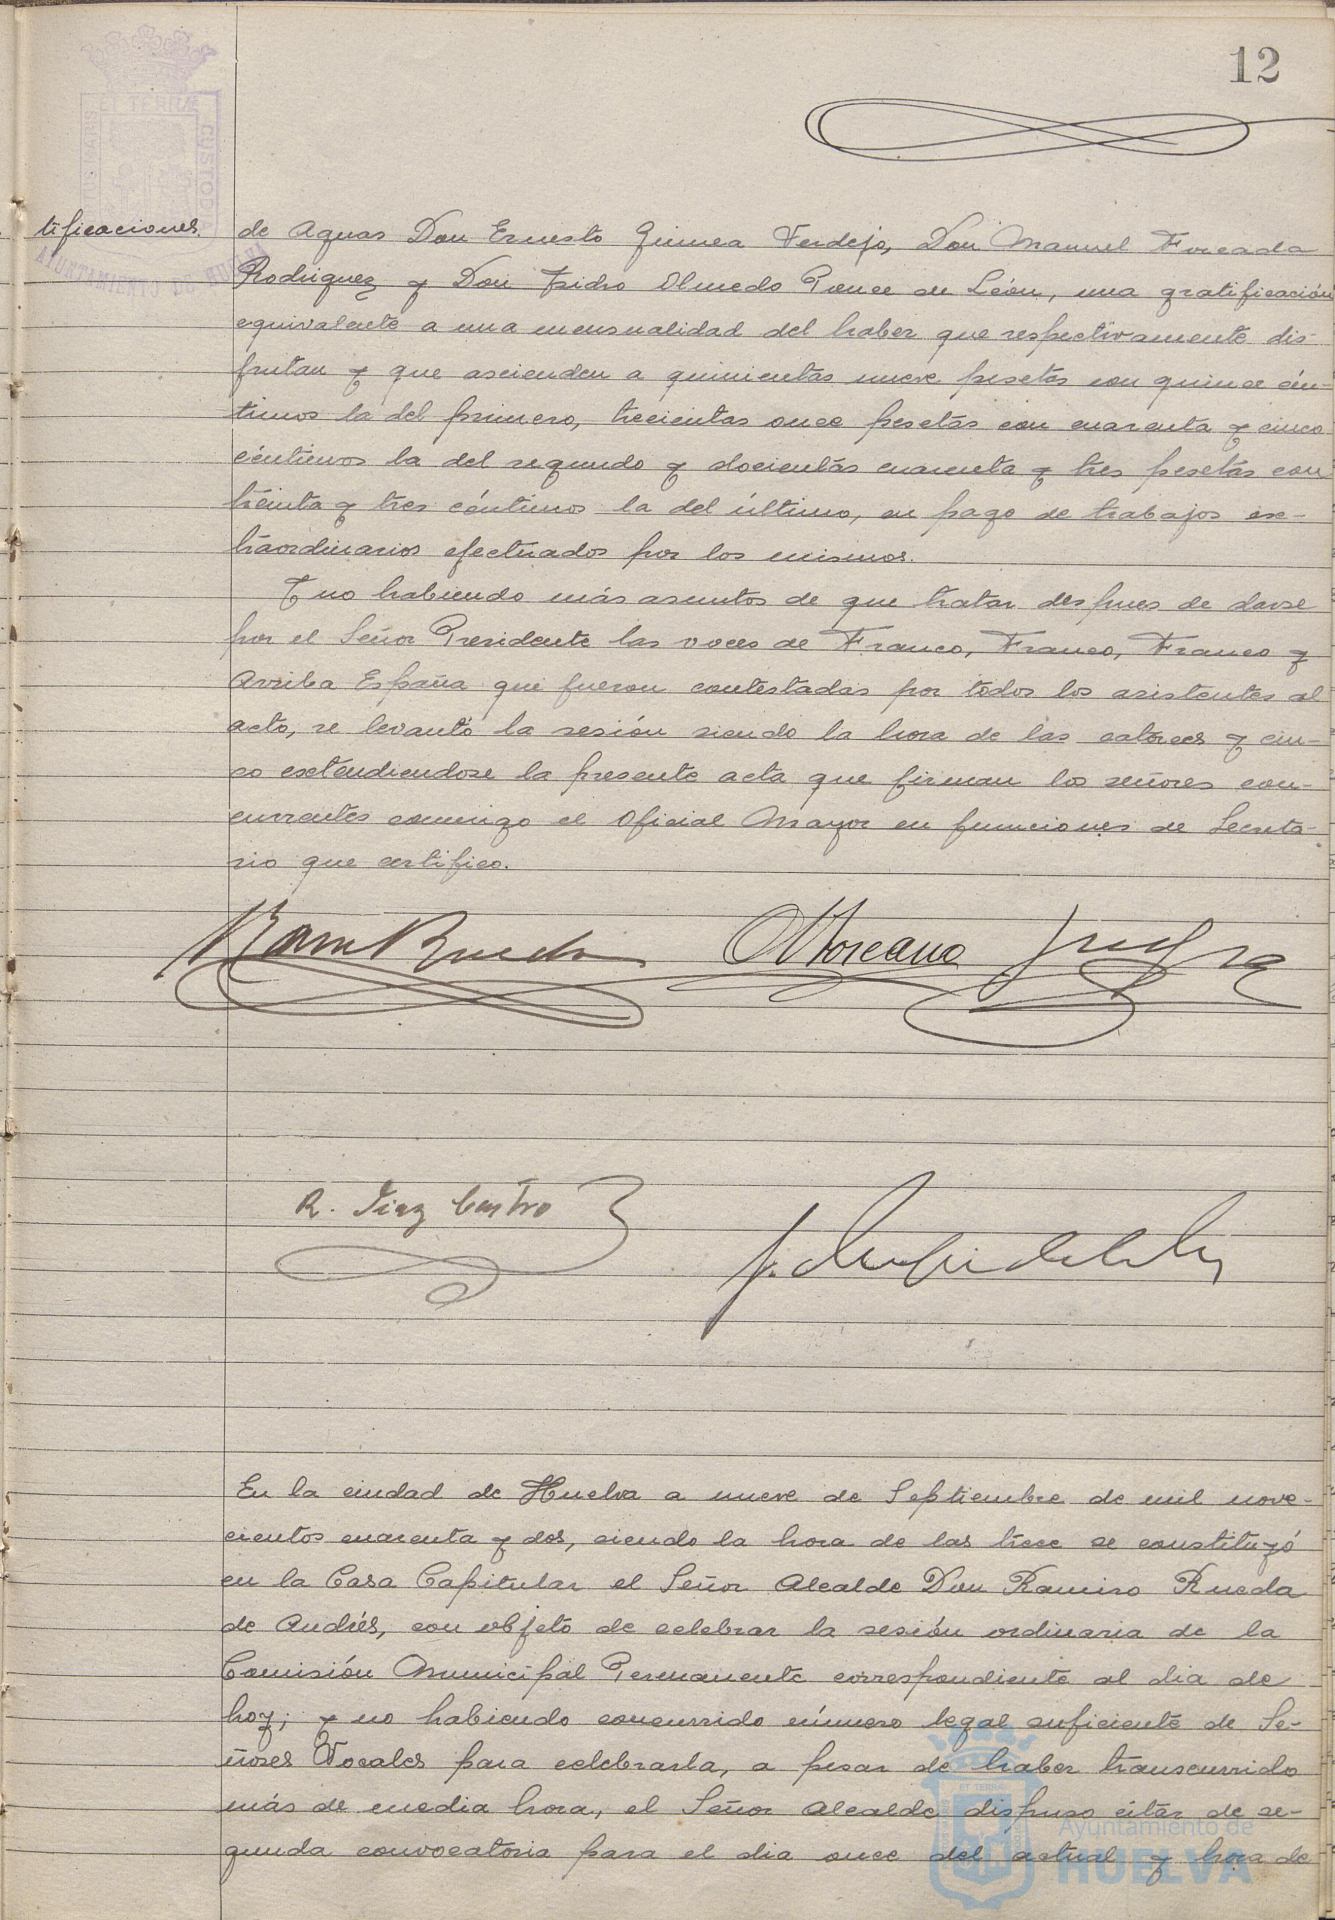 12
ET TERRAE
CUSTODIA
AYUNTAMIENTO DE HUELVA
tificaciones.
de Aguas Don Ernesto Guinea Verdejo, Don Manuel Forcada
Rodriguez y Don Isidro Olmedo Ponce de León, una gratificación
equivalente a una mensualidad del haber que respectivamente dis-
frutan y que ascienden a quinientas nueve pesetas con quince cén-
timos la del primero, trecientas once pesetas con cuarenta y cinco
céntimos la del segundo y docientas cuarenta y tres pesetas con
treinta y tres céntimos la del último, en pago de trabajos ex-
traordinarios efectuados por los mismos.
Y no habiendo más asuntos de que tratar despues de darse
por el Señor Presidente las voces de Franco, Franco, Franco y
Arriba España que fueron contestadas por todos los asistentes al
acto, se levantó la sesión siendo la hora de las catorce y cin-
co extendiendose la presente acta que firman los señores con-
currentes conmigo el Oficial Mayor en funciones de Secreta-
rio que certifico.
Ram Rueda
R. Diaz Castro
En la ciudad de Huelva a nueve de Septiembre de mil nove-
cientos cuarenta y dos, siendo la hora de las trece se constituyó
en la Casa Capitular el Señor Alcalde Don Ramiro Rueda
de Andrés, con objeto de celebrar la sesión ordinaria de la
Comisión Municipal Permanente correspondiente al dia de
hoy; y no habiendo concurrido número legal suficiente de Se-
ñores Vocales para celebrarla, a pesar de haber transcurrido
más de media hora, el Señor Alcalde dispuso citar de se-
gunda convocatoria para el dia once del actual y hora de
Ayuntamiento de
HUELVA